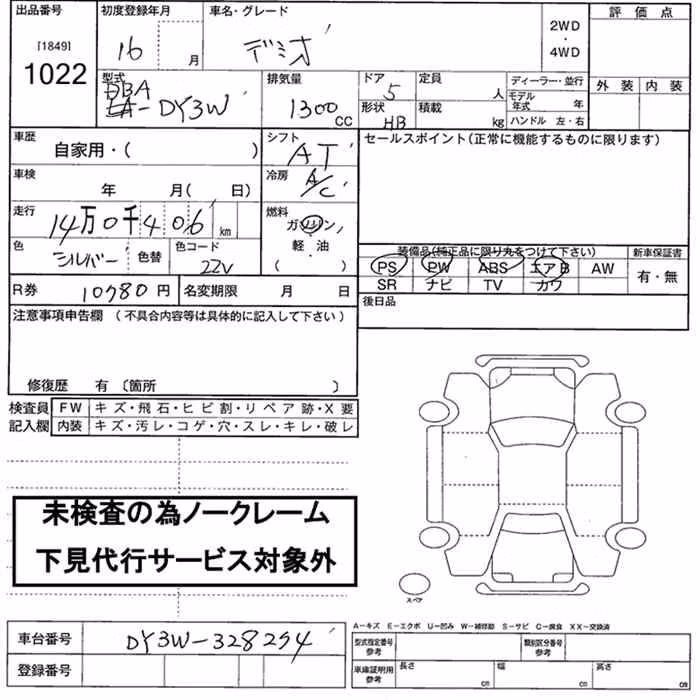 出品番号 初度登録年月 車名・グレード 評価点
[1849] 16 月 デミオ 2WD・4WD
1022
型式 排気量 ドア 定員 ディーラー・並行 外装 内装
DBA 5 人 モデル年式 年
DY3W 1300 CC 形状 HB 積載 kg ハンドル 左・右
車歴 自家用・( ) シフト AT セールスポイント(正常に機能するものに限ります)
車検 年 月( 日) 冷房 A/C
走行 14万0千406 km 燃料 ガソリン
色 シルバー 色替 色コード 22V 軽油 ( )
装備品(純正品に限り丸をつけて下さい) 新車保証書
PS PW ABS エアB AW 有・無
SR ナビ TV カワ
R券 10780円 名変期限 月 日 後日品
注意事項申告欄(不具合内容等は具体的に記入して下さい)
修復歴 有 〔箇所 〕
検査員 FW キズ・飛石・ヒビ割・リペア跡・X要
記入欄 内装 キズ・汚レ・コゲ・穴・スレ・キレ・破レ
未検査の為ノークレーム
下見代行サービス対象外
スペア
A-キズ E-エクボ U-凹み W-補修跡 S-サビ C-腐食 XX-交換済
車台番号 DY3W-328294 型式指定番号参考 類別区分番号参考
登録番号 車庫証明用参考 長さ cm 幅 cm 高さ cm